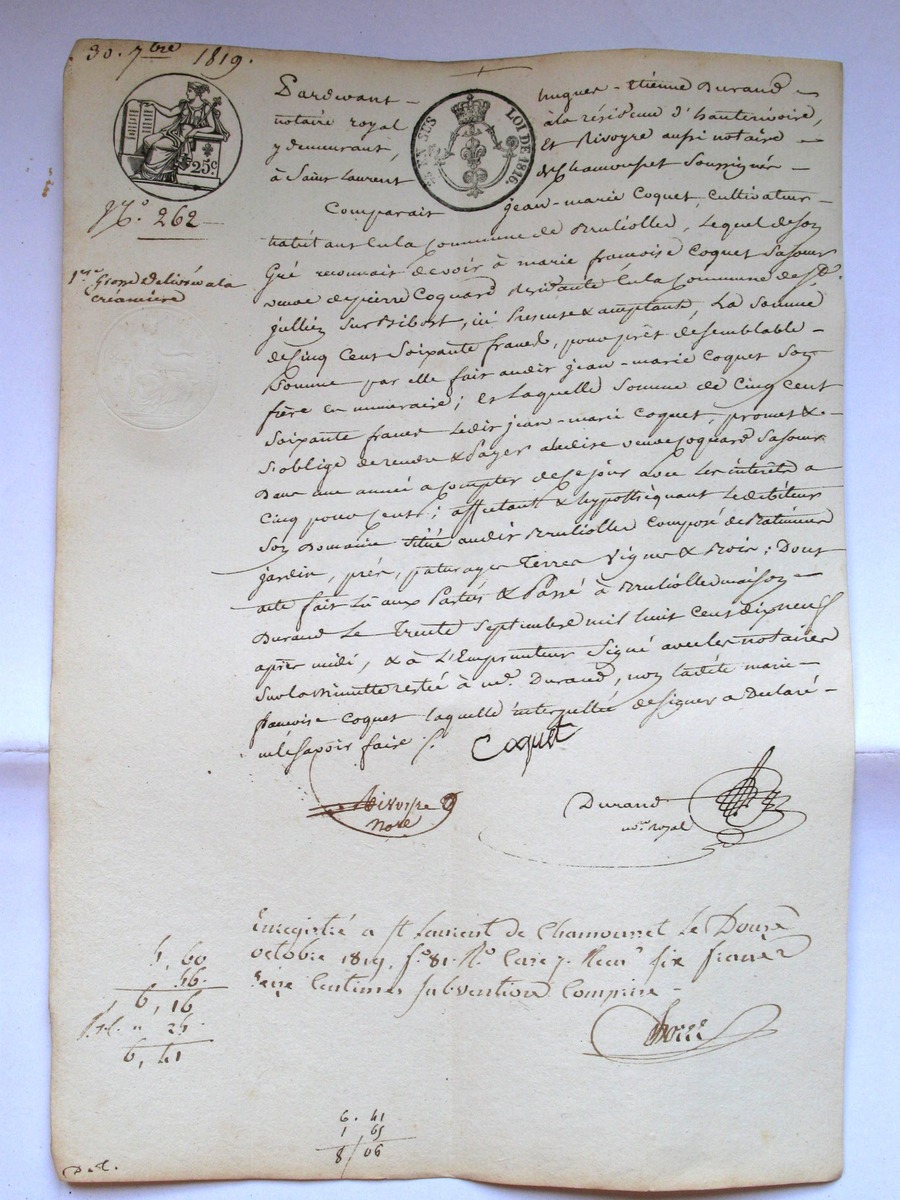 30. 7bre 1819.
25c.
EN SUS
LOI DE 1816
No. 262
1re Grosse delivrée a la
créancière
Pardevant hugues-Etienne Durand
notaire royal à la résidence d'hauterivoire,
y demeurant, et Rivoyre aussi notaire
à Saint Laurent de Chamousset Soussignés
Comparait jean-marie Coquet, Cultivateur
habitant en la Commune de Brulliolles, Lequel de son
Gré reconnait devoir à marie francoise Coquet Sa Soeur
veuve de pierre Coquard Residante en la Commune de St.
jullien Sur Bibost, ici presente & acceptant, La Somme
de Cinq Cent Soixante francs, pour prêt de semblable
Somme par elle fait audit jean-marie Coquet Son
frère en numeraire; Laquelle Somme de Cinq Cent
Soixante francs Ledit jean-marie Coquet, promet &
S'oblige de rendre & Payer a ladite veuve Coquard Sa Soeur
Dans une année a compter de Ce jour avec Les intérêts a
Cinq pour Cent; affectant & hypothéquant Le débiteur
Son Domaine Situé audit Brulliolles Composé de Batiments
jardin, prés, paturages Terres Vignes & Bois: Dont
acte fait Lû aux Parties & Passé à Brulliolles maison
Durand Le Trente Septembre mil huit Cent dixneuf
après midi, & à L'Emprunteur Signé avec les notaires
Sur la minutte restée à me. Durand, non Ladite marie
francoise Coquet laquelle interpellée de Signer a Declaré
ne Savoir faire /.
Coquet
Rivoyre
Nore
Durand
nre. royal
Enregistré a St Laurent de Chamousset Le Douze
octobre 1819, fo. 81. Ro. Case 7. Reçu six francs
Seize Centimes subvention Comprise
5, 60
56.
6, 16
25
6, 41
6. 41
1 65
8/06